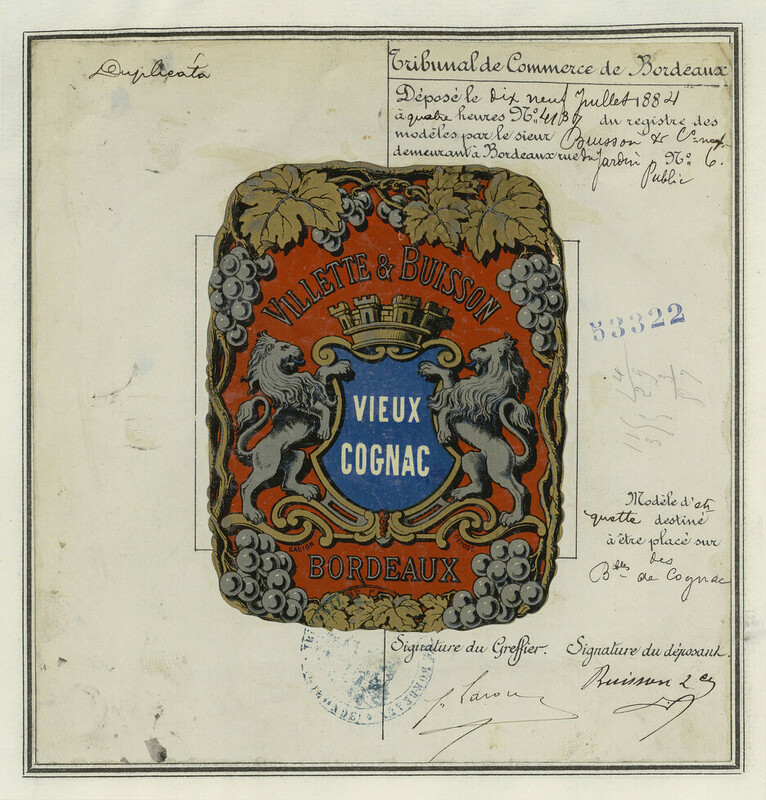 Duplicata
Tribunal de Commerce de Bordeaux
Déposé le dix neuf Juillet 1884
à quatre heures Nº 4137 du registre des
modèles par le sieur Buisson & Cie
demeurant à Bordeaux rue du Jardin Nº 6.
Public
VILLETTE & BUISSON
VIEUX
COGNAC
BORDEAUX
53322
Modèle d'éti
quette destiné
à être placé sur
des
Blles de Cognac
Signature du Greffier. Signature du déposant.
Buisson & Cie